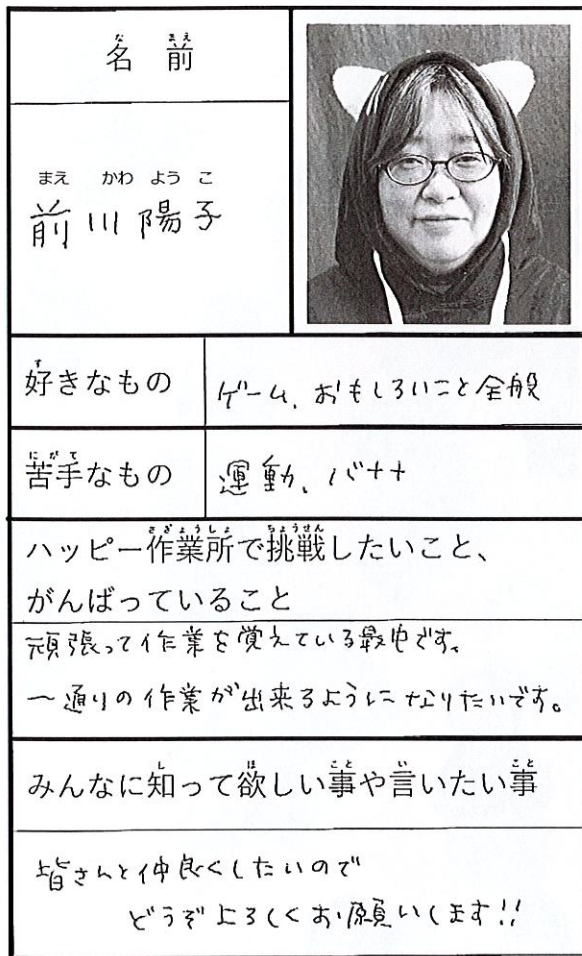 名前
まえ かわ よう こ
前川陽子
好きなもの
ゲーム、おもしろいこと全般
苦手なもの
運動、バナナ
ハッピー作業所で挑戦したいこと、
がんばっていること
頑張って作業を覚えている最中です。
一通りの作業が出来るようになりたいです。
みんなに知って欲しい事や言いたい事
皆さんと仲良くしたいので
どうぞよろしくお願いします!!